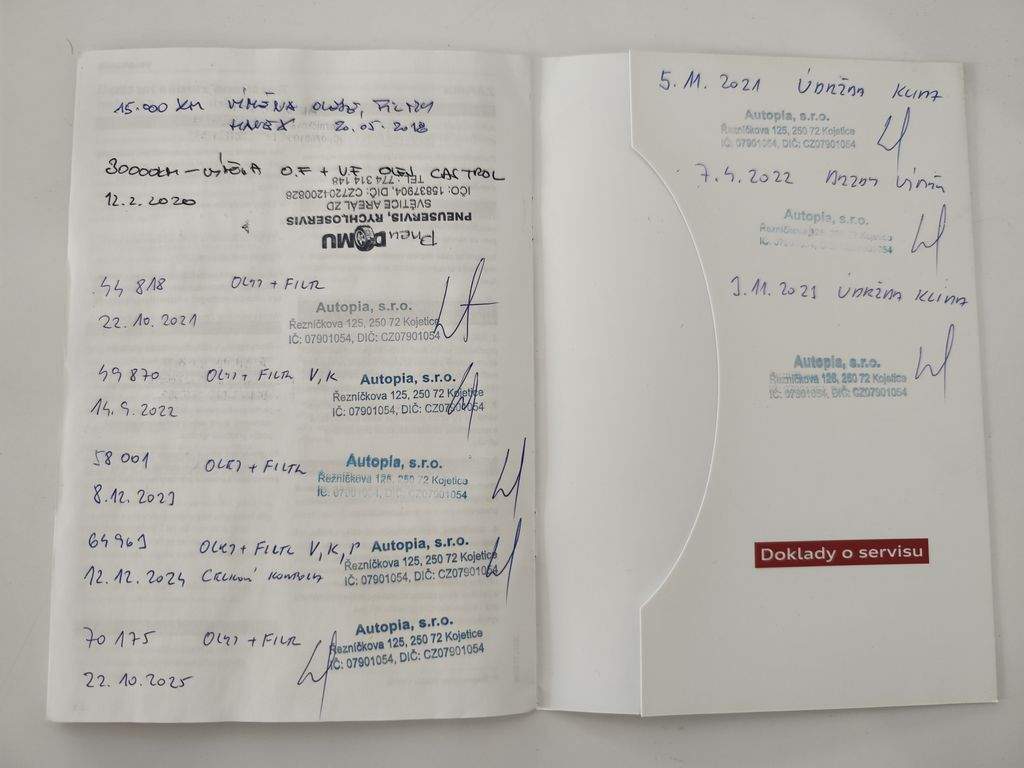 15.000 KM VÝMĚNA OLEJE, FILTRY
20.05.2018
30000KM – VÝMĚNA O.F + V.F OLEJ CASTROL
12.2.2020
Pneu DOMU
PNEUSERVIS, RYCHLOSERVIS
SVĚTICE AREÁL ZD
IČO: 15837904, DIČ: CZ7204200828
TEL.: 774 314 148
44 818 OLEJ + FILTR
22.10.2021
Autopia, s.r.o.
Řezníčkova 125, 250 72 Kojetice
IČ: 07901054, DIČ: CZ07901054
49 870 OLEJ + FILTR V,K
14.9.2022
Autopia, s.r.o.
Řezníčkova 125, 250 72 Kojetice
IČ: 07901054, DIČ: CZ07901054
58 001 OLEJ + FILTR
8.12.2023
Autopia, s.r.o.
Řezníčkova 125, 250 72 Kojetice
IČ: 07901054, DIČ: CZ07901054
64963 OLEJ + FILTR V,K,P
12.12.2024 CELKOVÁ KONTROLA
Autopia, s.r.o.
Řezníčkova 125, 250 72 Kojetice
IČ: 07901054, DIČ: CZ07901054
70 175 OLEJ + FILTR
22.10.2025
Autopia, s.r.o.
Řezníčkova 125, 250 72 Kojetice
IČ: 07901054, DIČ: CZ07901054
5.11.2021 ÚDRŽBA KLIMA
Autopia, s.r.o.
Řezníčkova 125, 250 72 Kojetice
IČ: 07901054, DIČ: CZ07901054
7.4.2022
Autopia, s.r.o.
Řezníčkova 125, 250 72 Kojetice
IČ: 07901054, DIČ: CZ07901054
3.11.2023 ÚDRŽBA KLIMA
Autopia, s.r.o.
Řezníčkova 125, 250 72 Kojetice
IČ: 07901054, DIČ: CZ07901054
Doklady o servisu